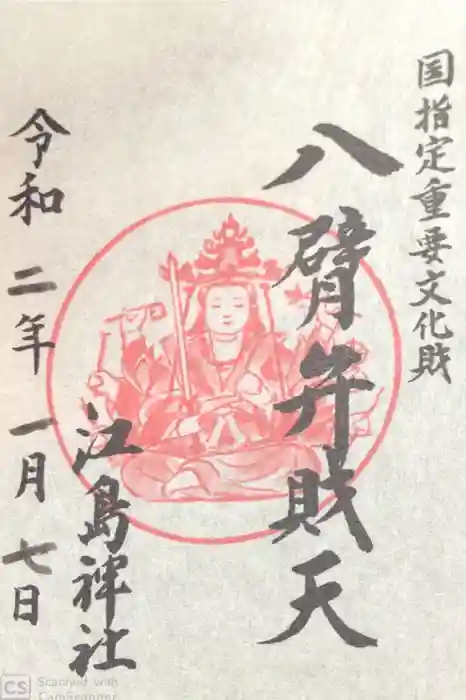 国指定重要文化財
八臂弁財天
江島神社
令和二年一月七日
CS Scanned with
CamScanner